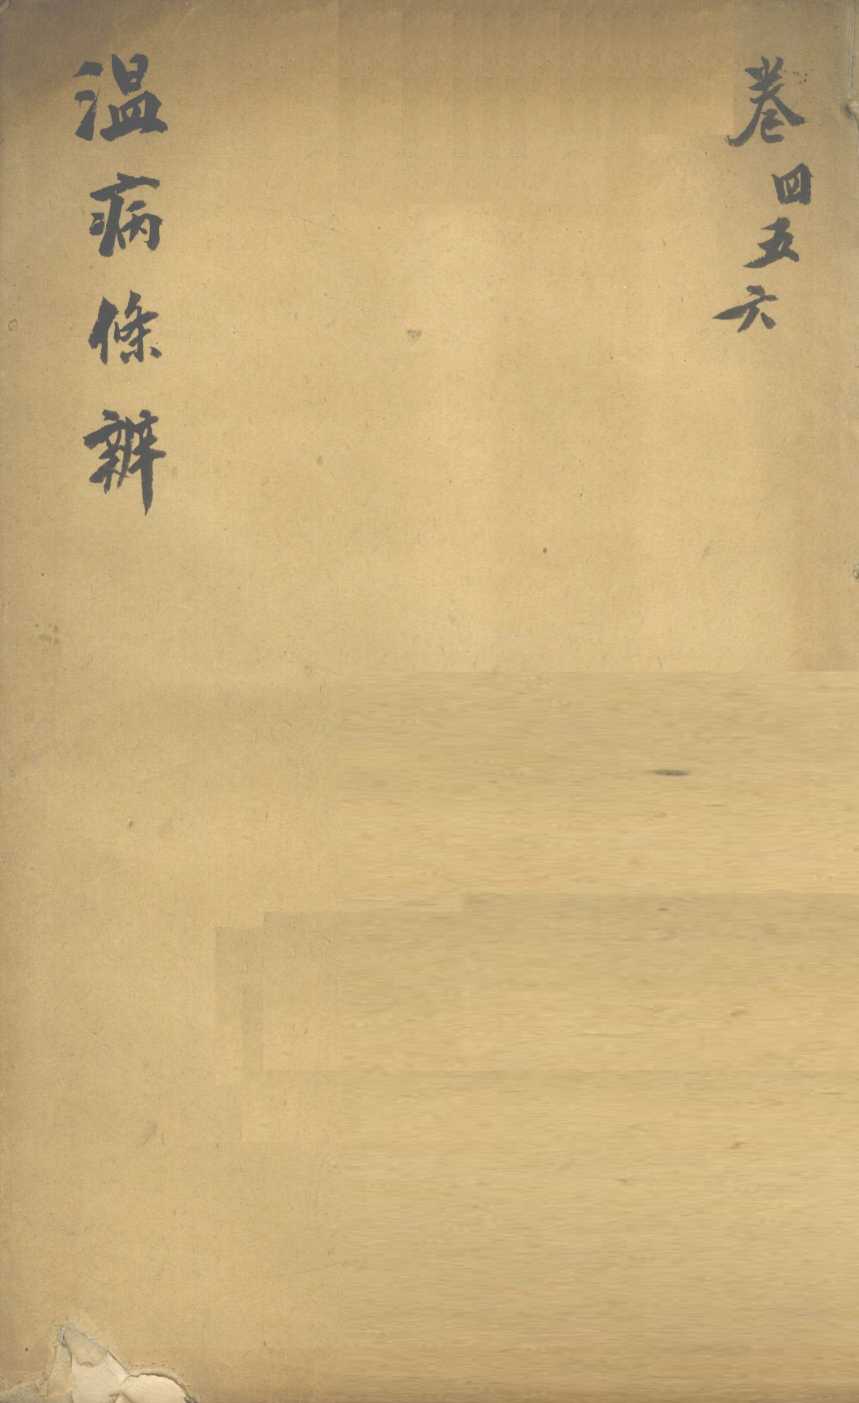 卷四五六
温病條辨